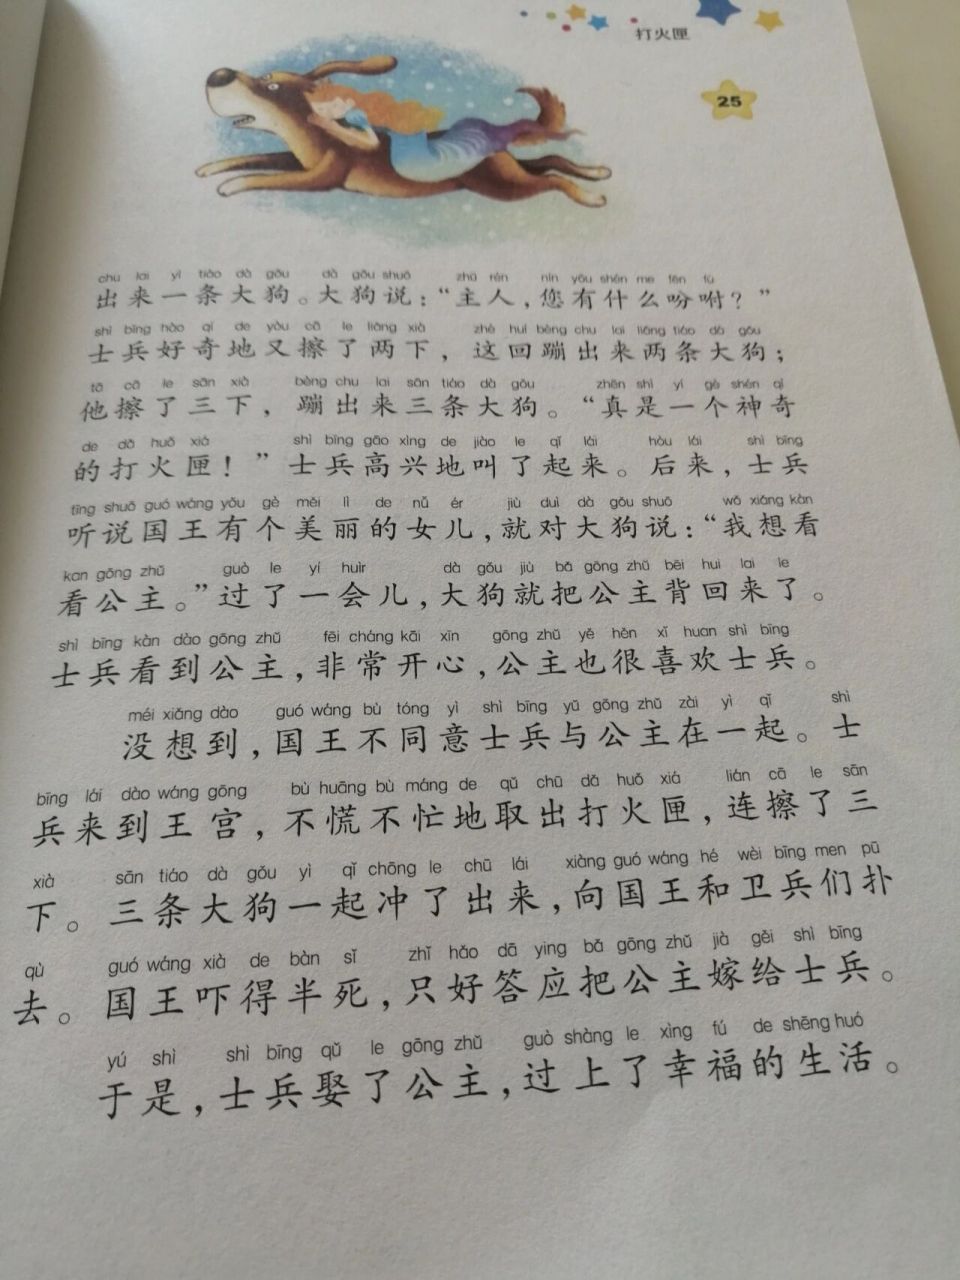 打火匣
25
chu lai yì tiáo dà gǒu dà gǒu shuō zhǔ rén nín yǒu shén me fēn fù
出来一条大狗。大狗说：“主人，您有什么吩咐？”
shì bīng hào qí de yòu cā le liǎng xià zhè huí bèng chu lai liǎng tiáo dà gǒu
士兵好奇地又擦了两下，这回蹦出来两条大狗；
tā cā le sān xià bèng chu lai sān tiáo dà gǒu zhēn shì yí gè shén qí
他擦了三下，蹦出来三条大狗。“真是一个神奇
de dǎ huǒ xiá shì bīng gāo xìng de jiào le qǐ lái hòu lái shì bīng
的打火匣！”士兵高兴地叫了起来。后来，士兵
tīng shuō guó wáng yǒu gè měi lì de nǚ ér jiù duì dà gǒu shuō wǒ xiǎng kàn
听说国王有个美丽的女儿，就对大狗说：“我想看
kan gōng zhǔ guò le yí huìr dà gǒu jiù bǎ gōng zhǔ bēi hui lai le
看公主。”过了一会儿，大狗就把公主背回来了。
shì bīng kàn dào gōng zhǔ fēi cháng kāi xīn gōng zhǔ yě hěn xǐ huan shì bīng
士兵看到公主，非常开心，公主也很喜欢士兵。
méi xiǎng dào guó wáng bù tóng yì shì bīng yǔ gōng zhǔ zài yì qǐ shì
没想到，国王不同意士兵与公主在一起。士
bīng lái dào wáng gōng bù huāng bù máng de qǔ chū dǎ huǒ xiá lián cā le sān
兵来到王宫，不慌不忙地取出打火匣，连擦了三
xià sān tiáo dà gǒu yì qǐ chōng le chū lái xiàng guó wáng hé wèi bīng men pū
下。三条大狗一起冲了出来，向国王和卫兵们扑
qù guó wáng xià de bàn sǐ zhǐ hǎo dā ying bǎ gōng zhǔ jià gěi shì bīng
去。国王吓得半死，只好答应把公主嫁给士兵。
yú shì shì bīng qǔ le gōng zhǔ guò shàng le xìng fú de shēng huó
于是，士兵娶了公主，过上了幸福的生活。